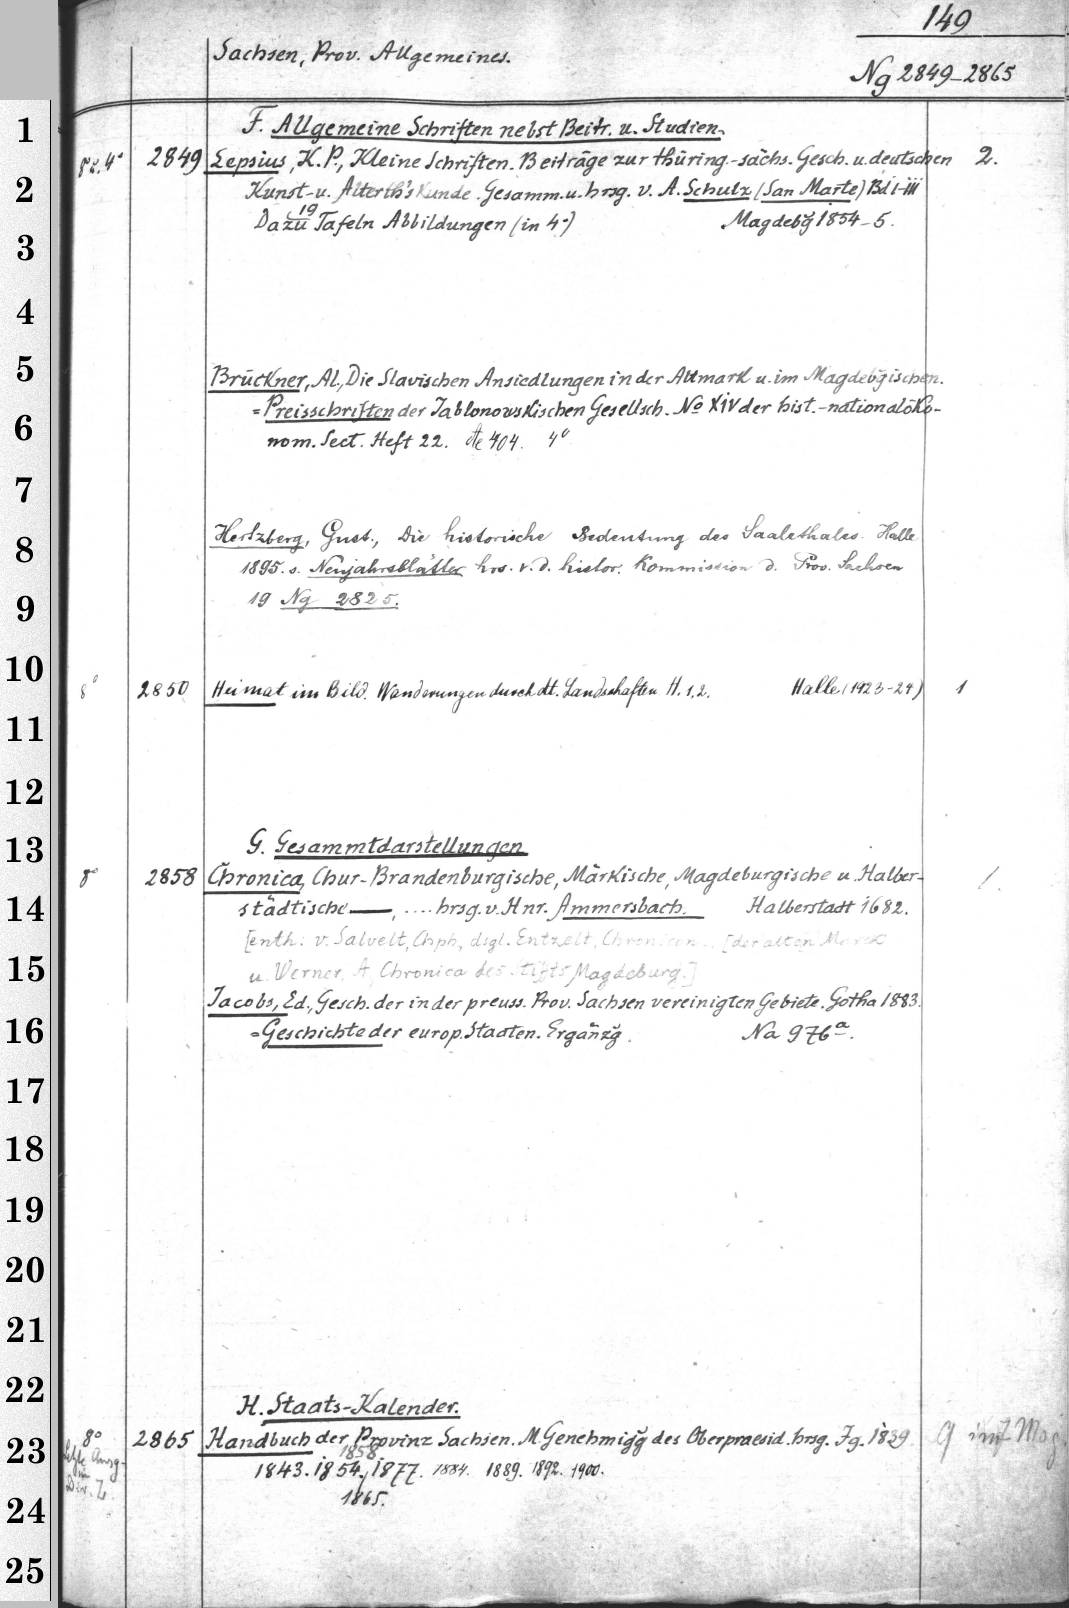 149
Sachsen, Prov. Allgemeines.
Ng 2849-2865
F. Allgemeine Schriften nebst Beitr. u. Studien.
8° u. 4° 2849 Lepsius, K. P., Kleine Schriften. Beiträge zur thüring.-sächs. Gesch. u. deutschen 2.
Kunst- u. Alterth's Kunde. Gesamm. u. hrsg. v. A. Schulz (San Marte) Bd I-III
Dazu 19 Tafeln Abbildungen (in 4°) Magdebg̅ 1854-5.
Brückner, Al., Die Slavischen Ansiedlungen in der Altmark u. im Magdebg̅ischen.
=Preisschriften der Jablonowskischen Gesellsch. No XIV der hist.-nationalöko-
nom. Sect. Heft 22. Ae 404. 4°
Hertzberg, Gust., Die historische Bedeutung des Saalethales. Halle
1895. s. Neujahrsblätter hrs. v. d. histor. Kommission d. Prov. Sachsen
19 Ng 2825.
8° 2850 Heimat im Bild. Wanderungen durch dt. Landschaften H. 1.2. Halle (1923-24) 1
G. Gesammtdarstellungen
8° 2858 Chronica, Chur-Brandenburgische, Märkische, Magdeburgische u. Halber- 1.
städtische —, .... hrsg. v. Hnr. Ammersbach. Halberstadt 1682.
[enth: v. Salvelt, Chph, dsgl. Entzelt, Chronicon.. [der alten Marck
u. Werner, A, Chronica des Stifts Magdeburg.]
Jacobs, Ed., Gesch. der in der preuss. Prov. Sachsen vereinigten Gebiete. Gotha 1883.
=Geschichte der europ. Staaten. Ergänzg̅. Na 976a.
H. Staats-Kalender.
8° 2865 Handbuch der Provinz Sachsen. M. Genehmigg̅ des Oberpraesid. hrsg. Jg. 1839. 9 im Mag
letzte Ausg. 1858
in 1843. 1854, 1877. 1884. 1889. 1892. 1900.
1865.